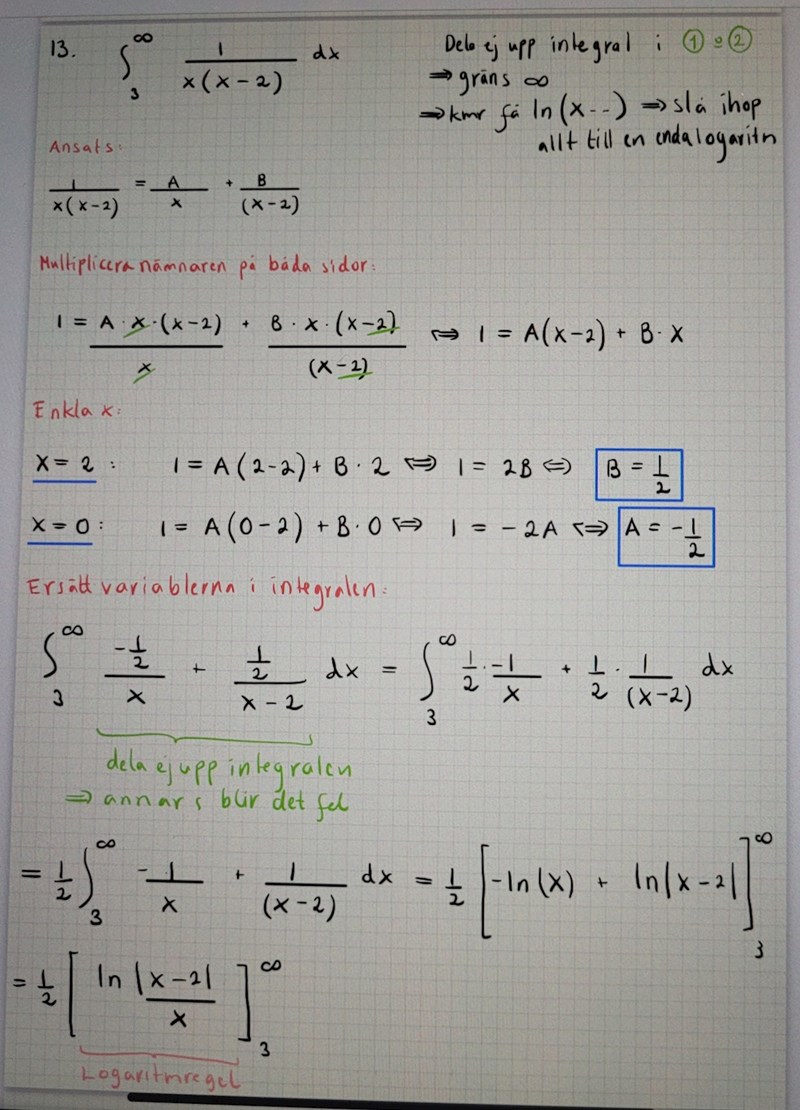 13. ∫₃^∞ 1/(x(x-2)) dx
Dela ej upp integral i ① o ②
⇒ gräns ∞
⇒ kmr få ln(x--) ⇒ slå ihop
allt till en enda logaritm
Ansats:
1/(x(x-2)) = A/x + B/(x-2)
Multiplicera nämnaren på båda sidor:
1 = A·x·(x-2)/x + B·x·(x-2)/(x-2) ⇔ 1 = A(x-2) + B·x
Enkla x:
x = 2 : 1 = A(2-2) + B·2 ⇔ 1 = 2B ⇔ B = 1/2
x = 0 : 1 = A(0-2) + B·0 ⇔ 1 = -2A ⇔ A = -1/2
Ersätt variablerna i integralen:
∫₃^∞ (-1/2)/x + (1/2)/(x-2) dx = ∫₃^∞ 1/2 · -1/x + 1/2 · 1/(x-2) dx
dela ej upp integralen
⇒ annars blir det fel
= 1/2 ∫₃^∞ -1/x + 1/(x-2) dx = 1/2 [-ln(x) + ln|x-2|]₃^∞
= 1/2 [ln |x-2|/x]₃^∞
Logaritmregel